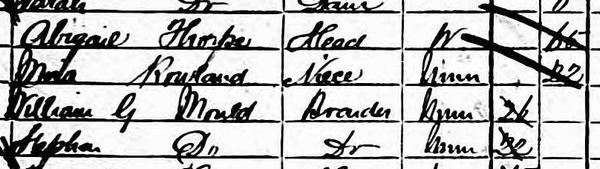 Sarah Do
Abigail Thorpe Head W 65
Rowland Niece Unm 27
William G Mould Boarder Unm 26
Stephen Do Do Unm 32